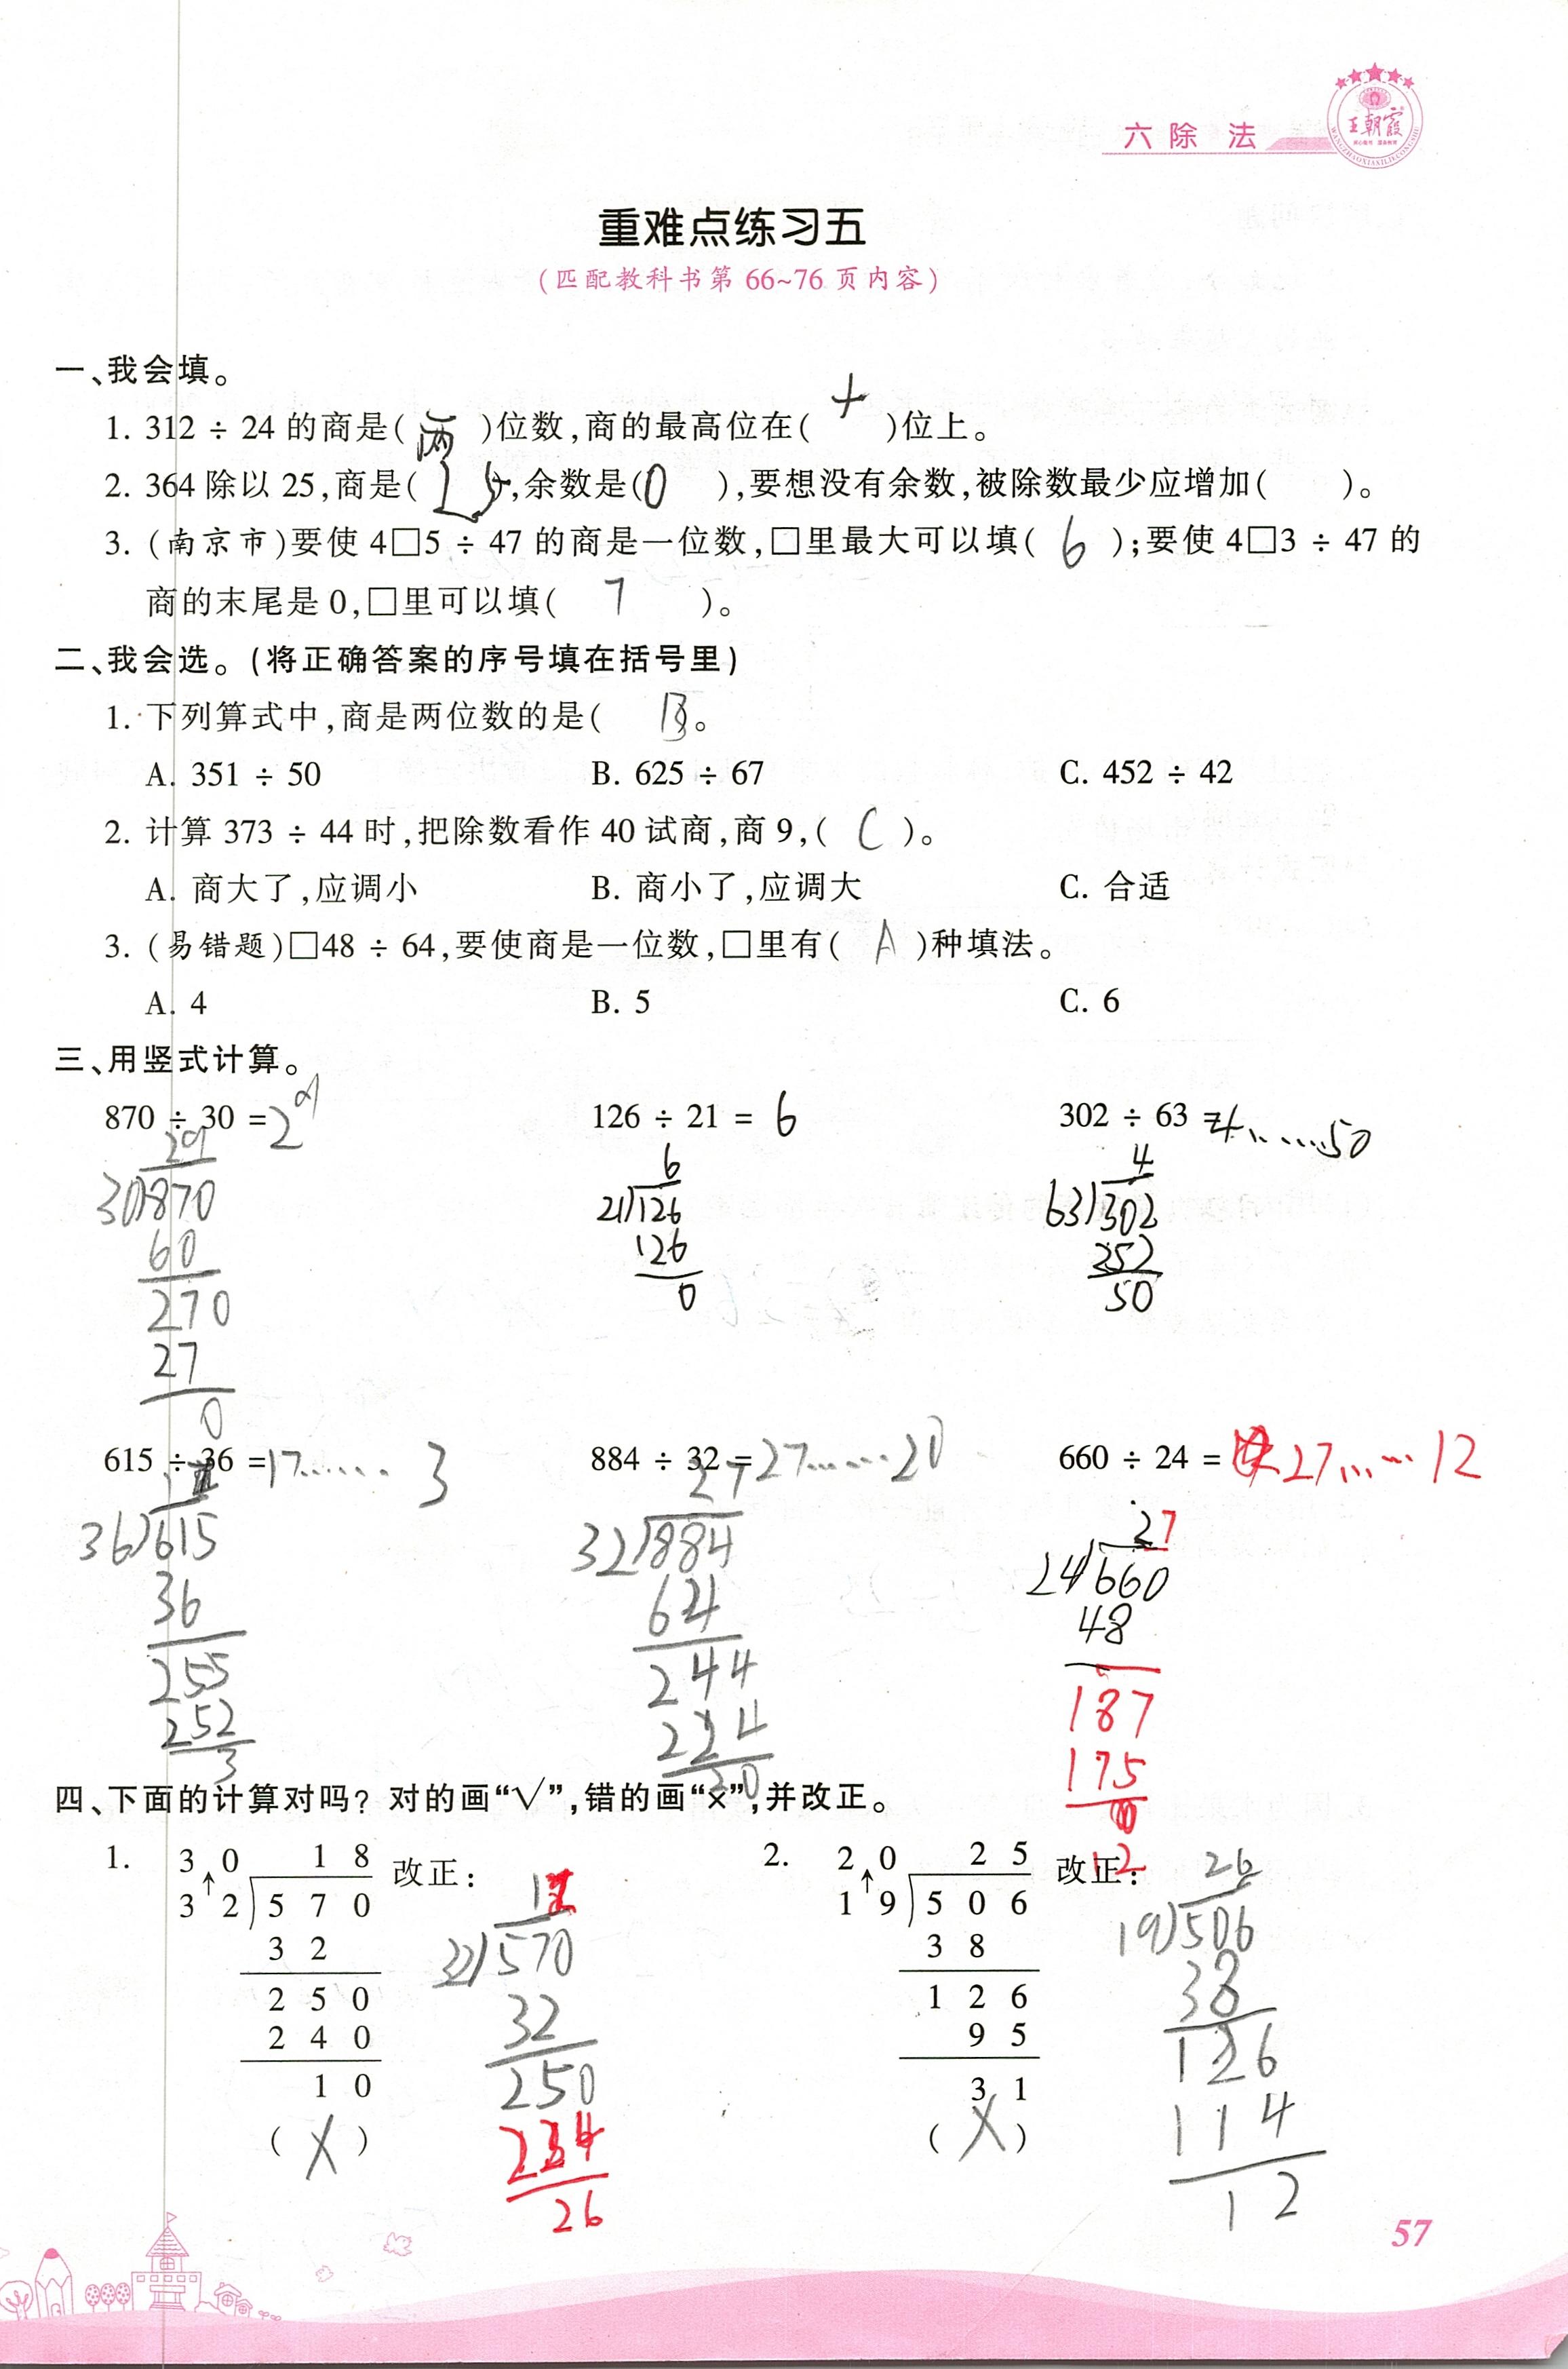 六 除 法
王朝霞
重难点练习五
(匹配教科书第 66~76 页内容)
一、我会填。
1. 312 ÷ 24 的商是( 两 )位数,商的最高位在( 十 )位上。
2. 364 除以 25,商是( 15 ),余数是( 0 ),要想没有余数,被除数最少应增加( )。
3. (南京市)要使 4□5 ÷ 47 的商是一位数,□里最大可以填( 6 );要使 4□3 ÷ 47 的
商的末尾是 0,□里可以填( 7 )。
二、我会选。(将正确答案的序号填在括号里)
1. 下列算式中,商是两位数的是( B 。
A. 351 ÷ 50 B. 625 ÷ 67 C. 452 ÷ 42
2. 计算 373 ÷ 44 时,把除数看作 40 试商,商 9,( C )。
A. 商大了,应调小 B. 商小了,应调大 C. 合适
3. (易错题)□48 ÷ 64,要使商是一位数,□里有( A )种填法。
A. 4 B. 5 C. 6
三、用竖式计算。
870 ÷ 30 = 29 126 ÷ 21 = 6 302 ÷ 63 = 4……50
29 6 4
30)870 21)126 63)302
60 126 252
270 0 50
27
0
615 ÷ 36 = 17…… 3 884 ÷ 32 = 27……20 660 ÷ 24 = 27……12
27 27
36)615 32)884 24)660
36 64 48
255 244 187
252 224 175
3 20 12
四、下面的计算对吗? 对的画“√”,错的画“×”,并改正。
1. 3 0 1 8 改正: 2. 2 0 2 5 改正: 26
3 2 ) 5 7 0 32)570 1 9 ) 5 0 6 19)506
3 2 32 3 8 38
2 5 0 250 1 2 6 126
2 4 0 234 9 5 114
1 0 26 3 1 12
( X ) ( X )
57